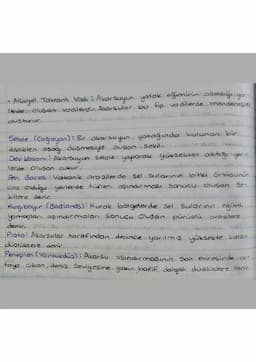 - Alüvyal Tabanlı Vadi: Akarsuyun yatak eğiminin azaldığı yer-
lerde oluşan vadilerdir. Akarsular bu tip vadilerde menderesler
oluşturur.
Şelale (Çağlayan): Bir akarsuyun yatağında bulunan bir
diklikten aşağı düşmesiyle oluşan şekil.
Dev kazanı: Akarsuyun şelale yaparak yüksekten aktığı yer-
lerde oluşan çukur.
Peri Bacası: Volkanik arazilerde sel sularının bitki örtüsünün
az olduğu yerlerde tüfleri aşındırması sonucu oluşan şe-
killere denir.
Kırgıbayır (Badlands): Kurak bölgelerde sel sularının eğimli
yamaçları aşındırmaları sonucu oluşan pürüzlü arazilere
denir.
Plato: Akarsular tarafından derince yarılmış yüksekte kalan
düzlüklere denir.
Peneplen (Yontukdüz): Akarsu aşındırmasının son evresinde or-
taya çıkan, deniz seviyesine yakın hafif dalgalı düzlüklere denir.